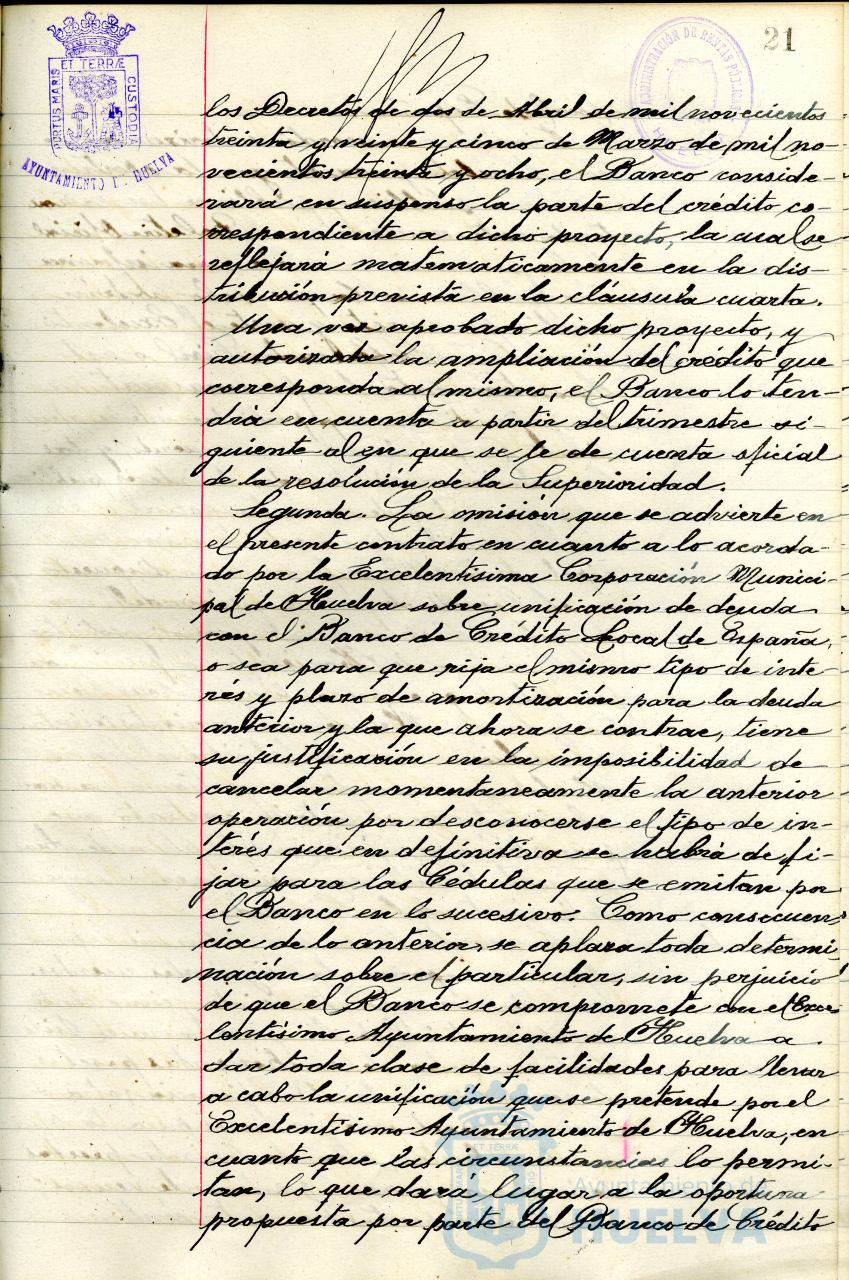 21
PORTUS MARIS ET TERRÆ CUSTODIA
AYUNTAMIENTO DE HUELVA
ADMINISTRACIÓN DE RENTAS PÚBLICAS
los Decretos de dos de Abril de mil novecientos
treinta y veinte y cinco de Marzo de mil no-
vecientos treinta y ocho, el Banco conside-
rará en suspenso la parte del crédito co-
rrespondiente a dicho proyecto, la cual se
reflejará matematicamente en la dis-
tribución prevista en la cláusula cuarta.
Una vez aprobado dicho proyecto, y
autorizada la ampliación del crédito que
corresponda al mismo, el Banco lo ten-
dria en cuenta a partir del trimestre si-
guiente al en que se le de cuenta oficial
de la resolución de la Superioridad.
Segunda. La omisión que se advierte en
el presente contrato en cuanto a lo acorda-
do por la Excelentisima Corporación Munici-
pal de Huelva sobre unificación de deuda
con el Banco de Crédito Local de España,
o sea para que rija el mismo tipo de inte-
rés y plazo de amortización para la deuda
anterior y la que ahora se contrae, tiene
su justificación en la imposibilidad de
cancelar momentaneamente la anterior
operación por desconocerse el tipo de in-
terés que en definitiva se habrá de fi-
jar para las Cédulas que se emitan por
el Banco en lo sucesivo. Como consecuen-
cia de lo anterior, se aplaza toda determi-
nación sobre el particular, sin perjuicio
de que el Banco se compromete con el Exce-
lentisimo Ayuntamiento de Huelva a
dar toda clase de facilidades para llevar
a cabo la unificación que se pretende por el
Excelentisimo Ayuntamiento de Huelva, en
cuanto que las circunstancias lo permi-
tan, lo que dará lugar a la oportuna
propuesta por parte del Banco de Crédito
Ayuntamiento de
HUELVA